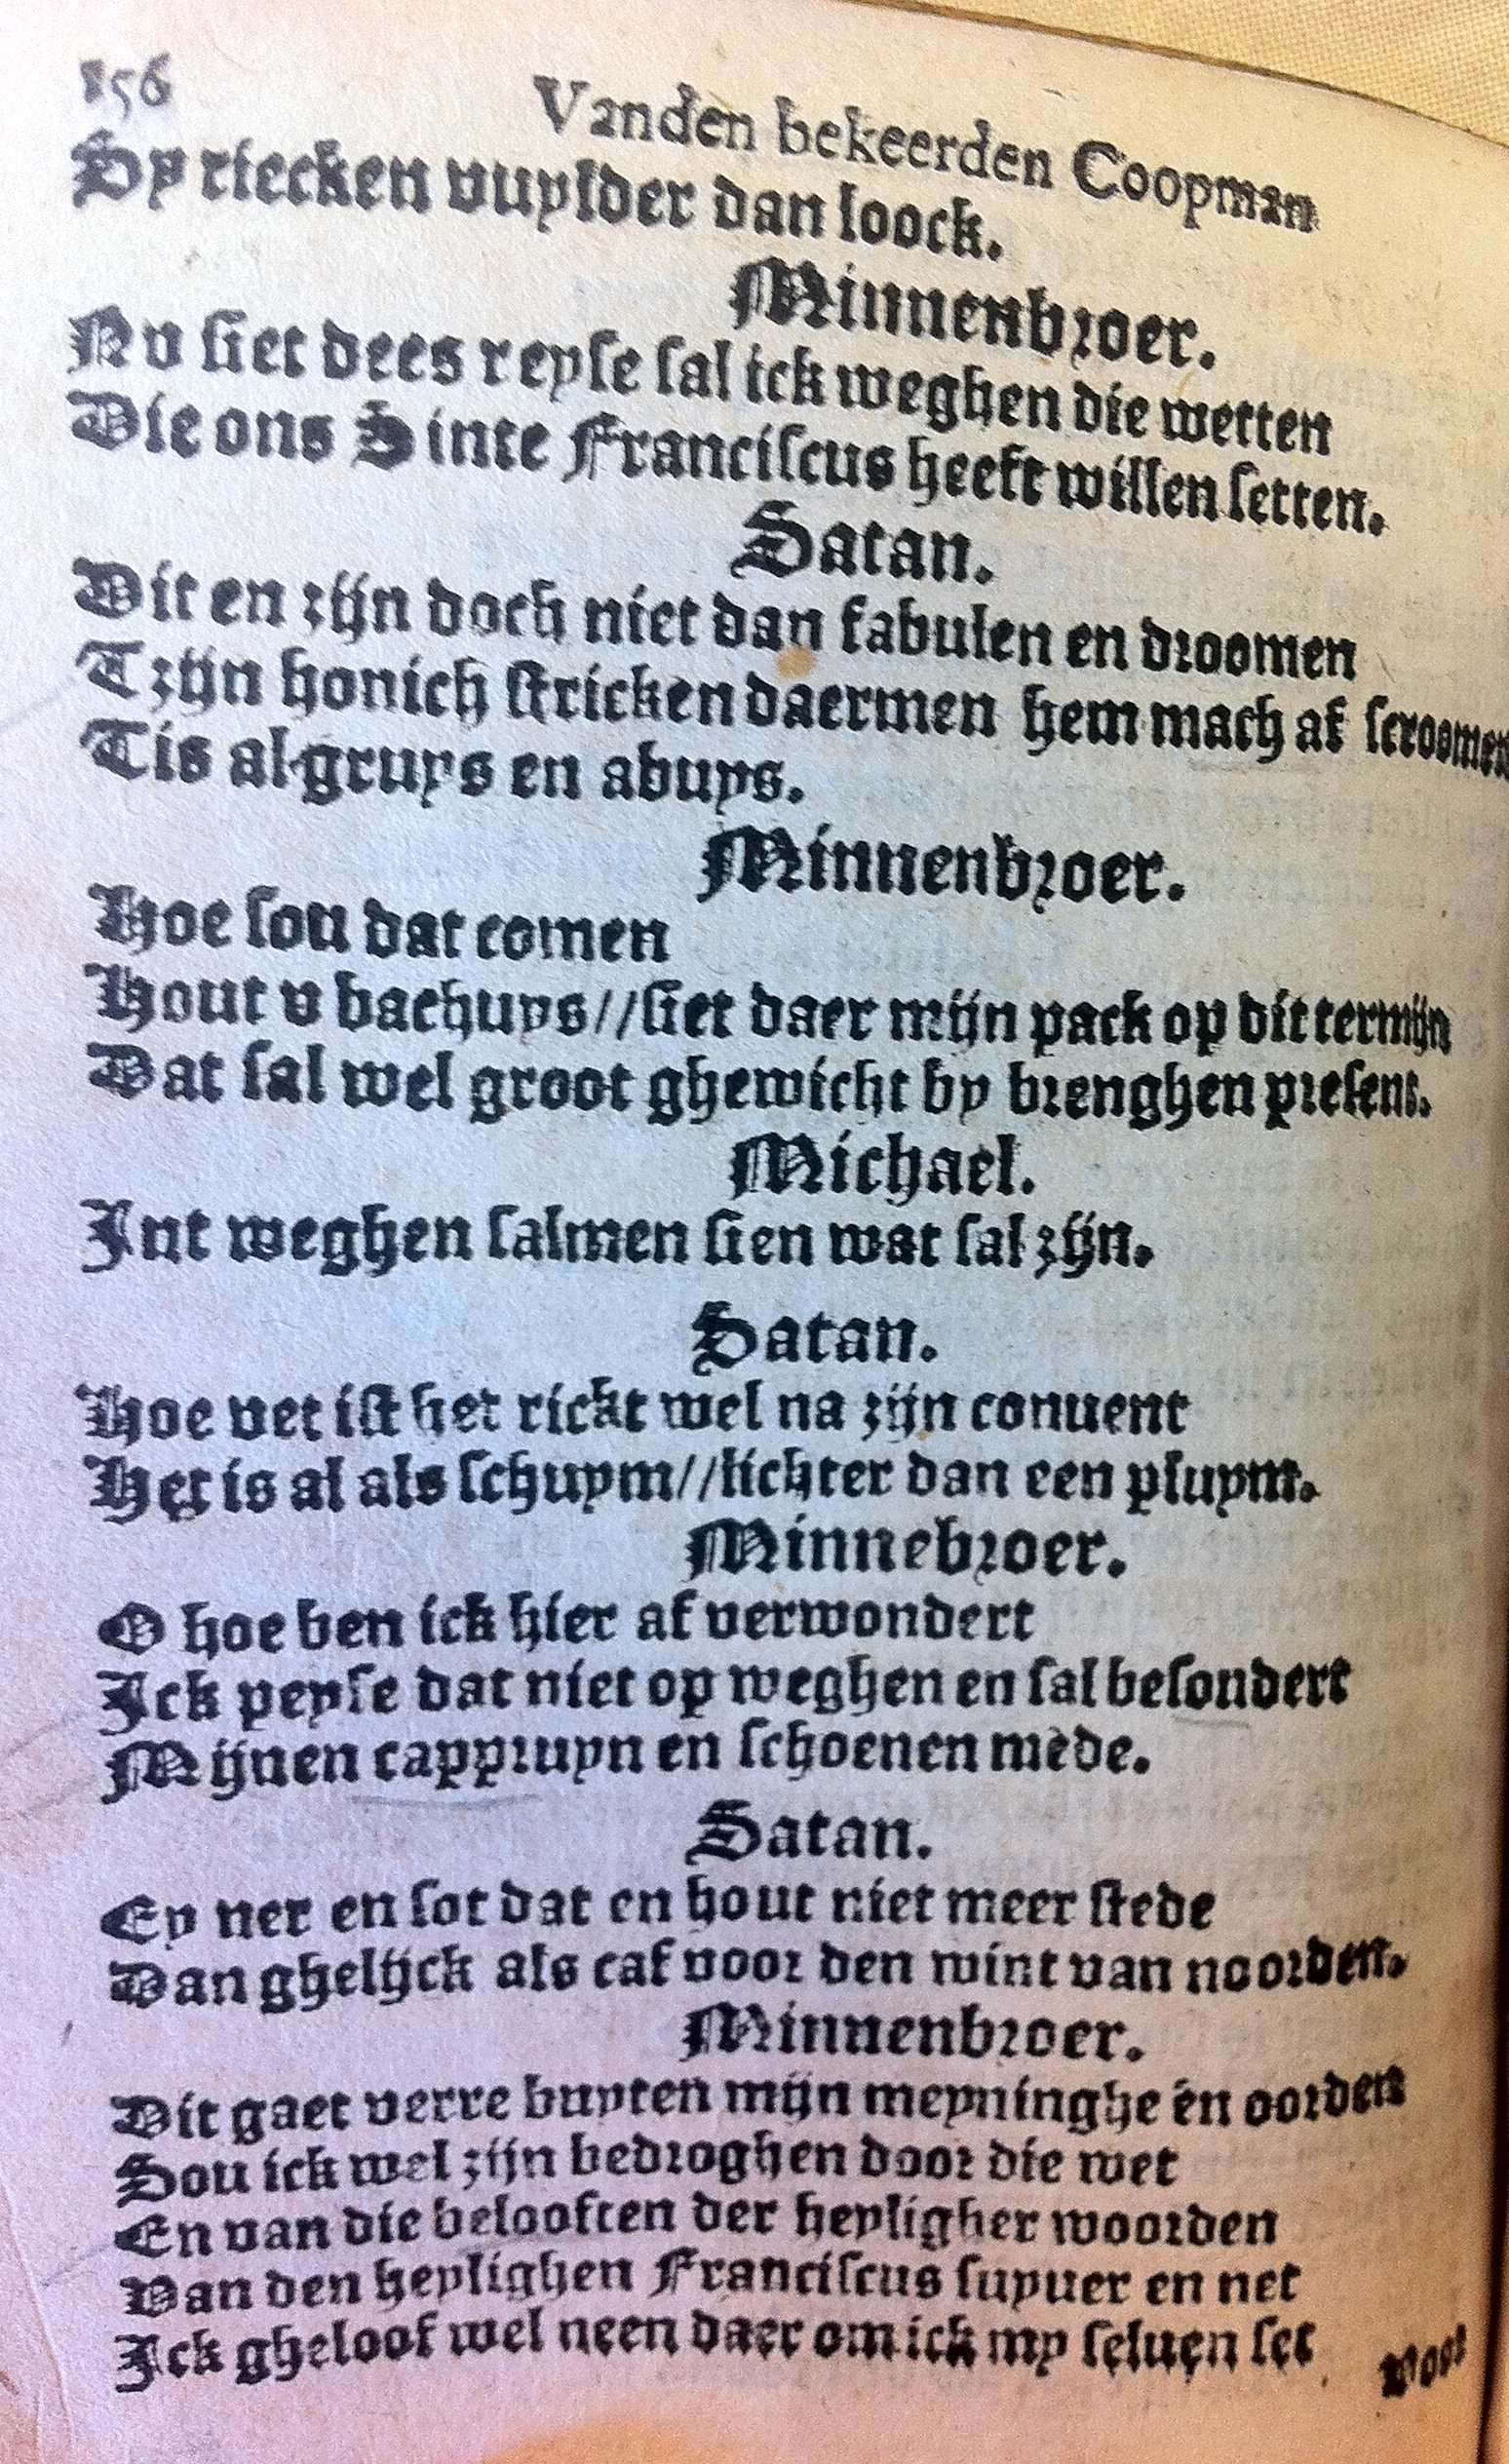 156
Vanden bekeerden Coopman
Sy riecken vuylder dan loock.
Minnenbroer.
Nv siet dees reyse sal ick weghen die wetten
Die ons Sinte Franciscus heeft willen setten.
Satan.
Dit en zijn doch niet dan fabulen en droomen
Tzijn honich stricken daermen hem mach af scroomen
Tis al gruys en abuys.
Minnenbroer.
Hoe sou dat comen
Hout v bachuys//siet daer mijn pack op dit termijn
Dat sal wel groot ghewicht by brenghen present.
Michael.
Int weghen salmen sien wat sal zijn.
Satan.
Hoe vet ist het rickt wel na zijn conuent
Het is al als schuym//lichter dan een pluym.
Minnebroer.
O hoe ben ick hier af verwondert
Ick peyse dat niet op weghen en sal besondert
Mijnen cappruyn en schoenen mede.
Satan.
Ey ner en sot dat en hout niet meer stede
Dan ghelijck als caf voor den wint van noorden.
Minnenbroer.
Dit gaet verre buyten mijn meyninghe en oorden
Sou ick wel zijn bedroghen door die wet
En van die belooften der heyligher woorden
Van den heylighen Franciscus suyuer en net
Ick gheloof wel neen daer om ick my seluen set
Voor